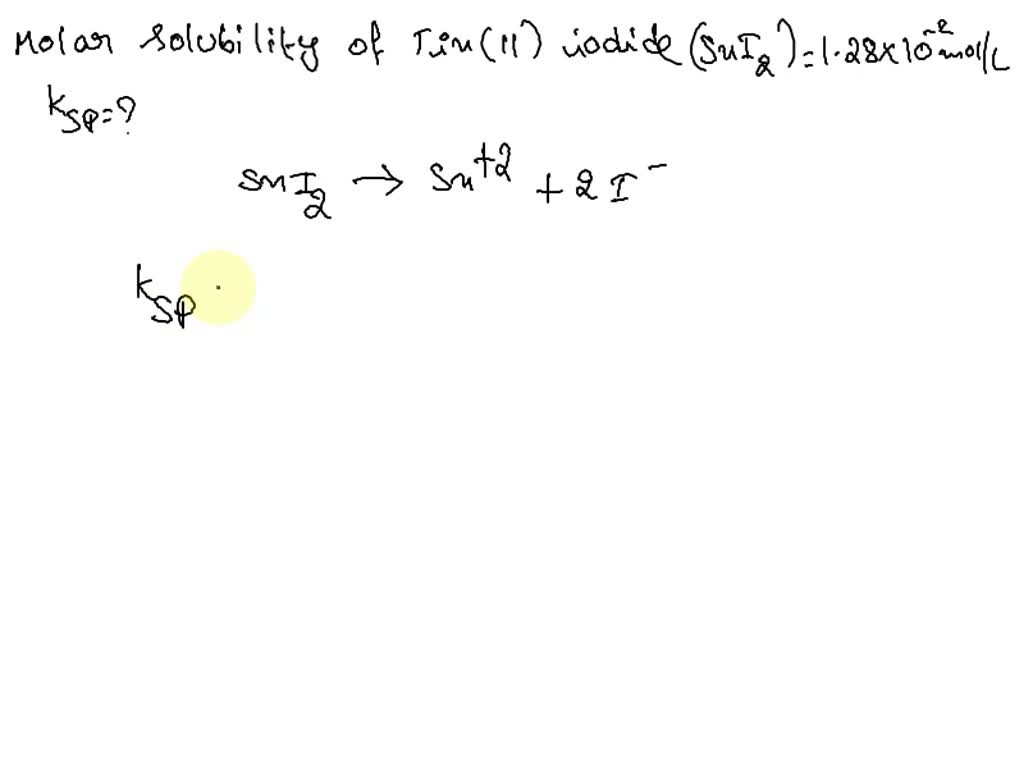 Molar Solubility of Tin(II) iodide (SnI₂) = 1.28×10⁻² mol/L
kSP = ?
SnI₂ → Sn⁺² + 2I⁻
kSP